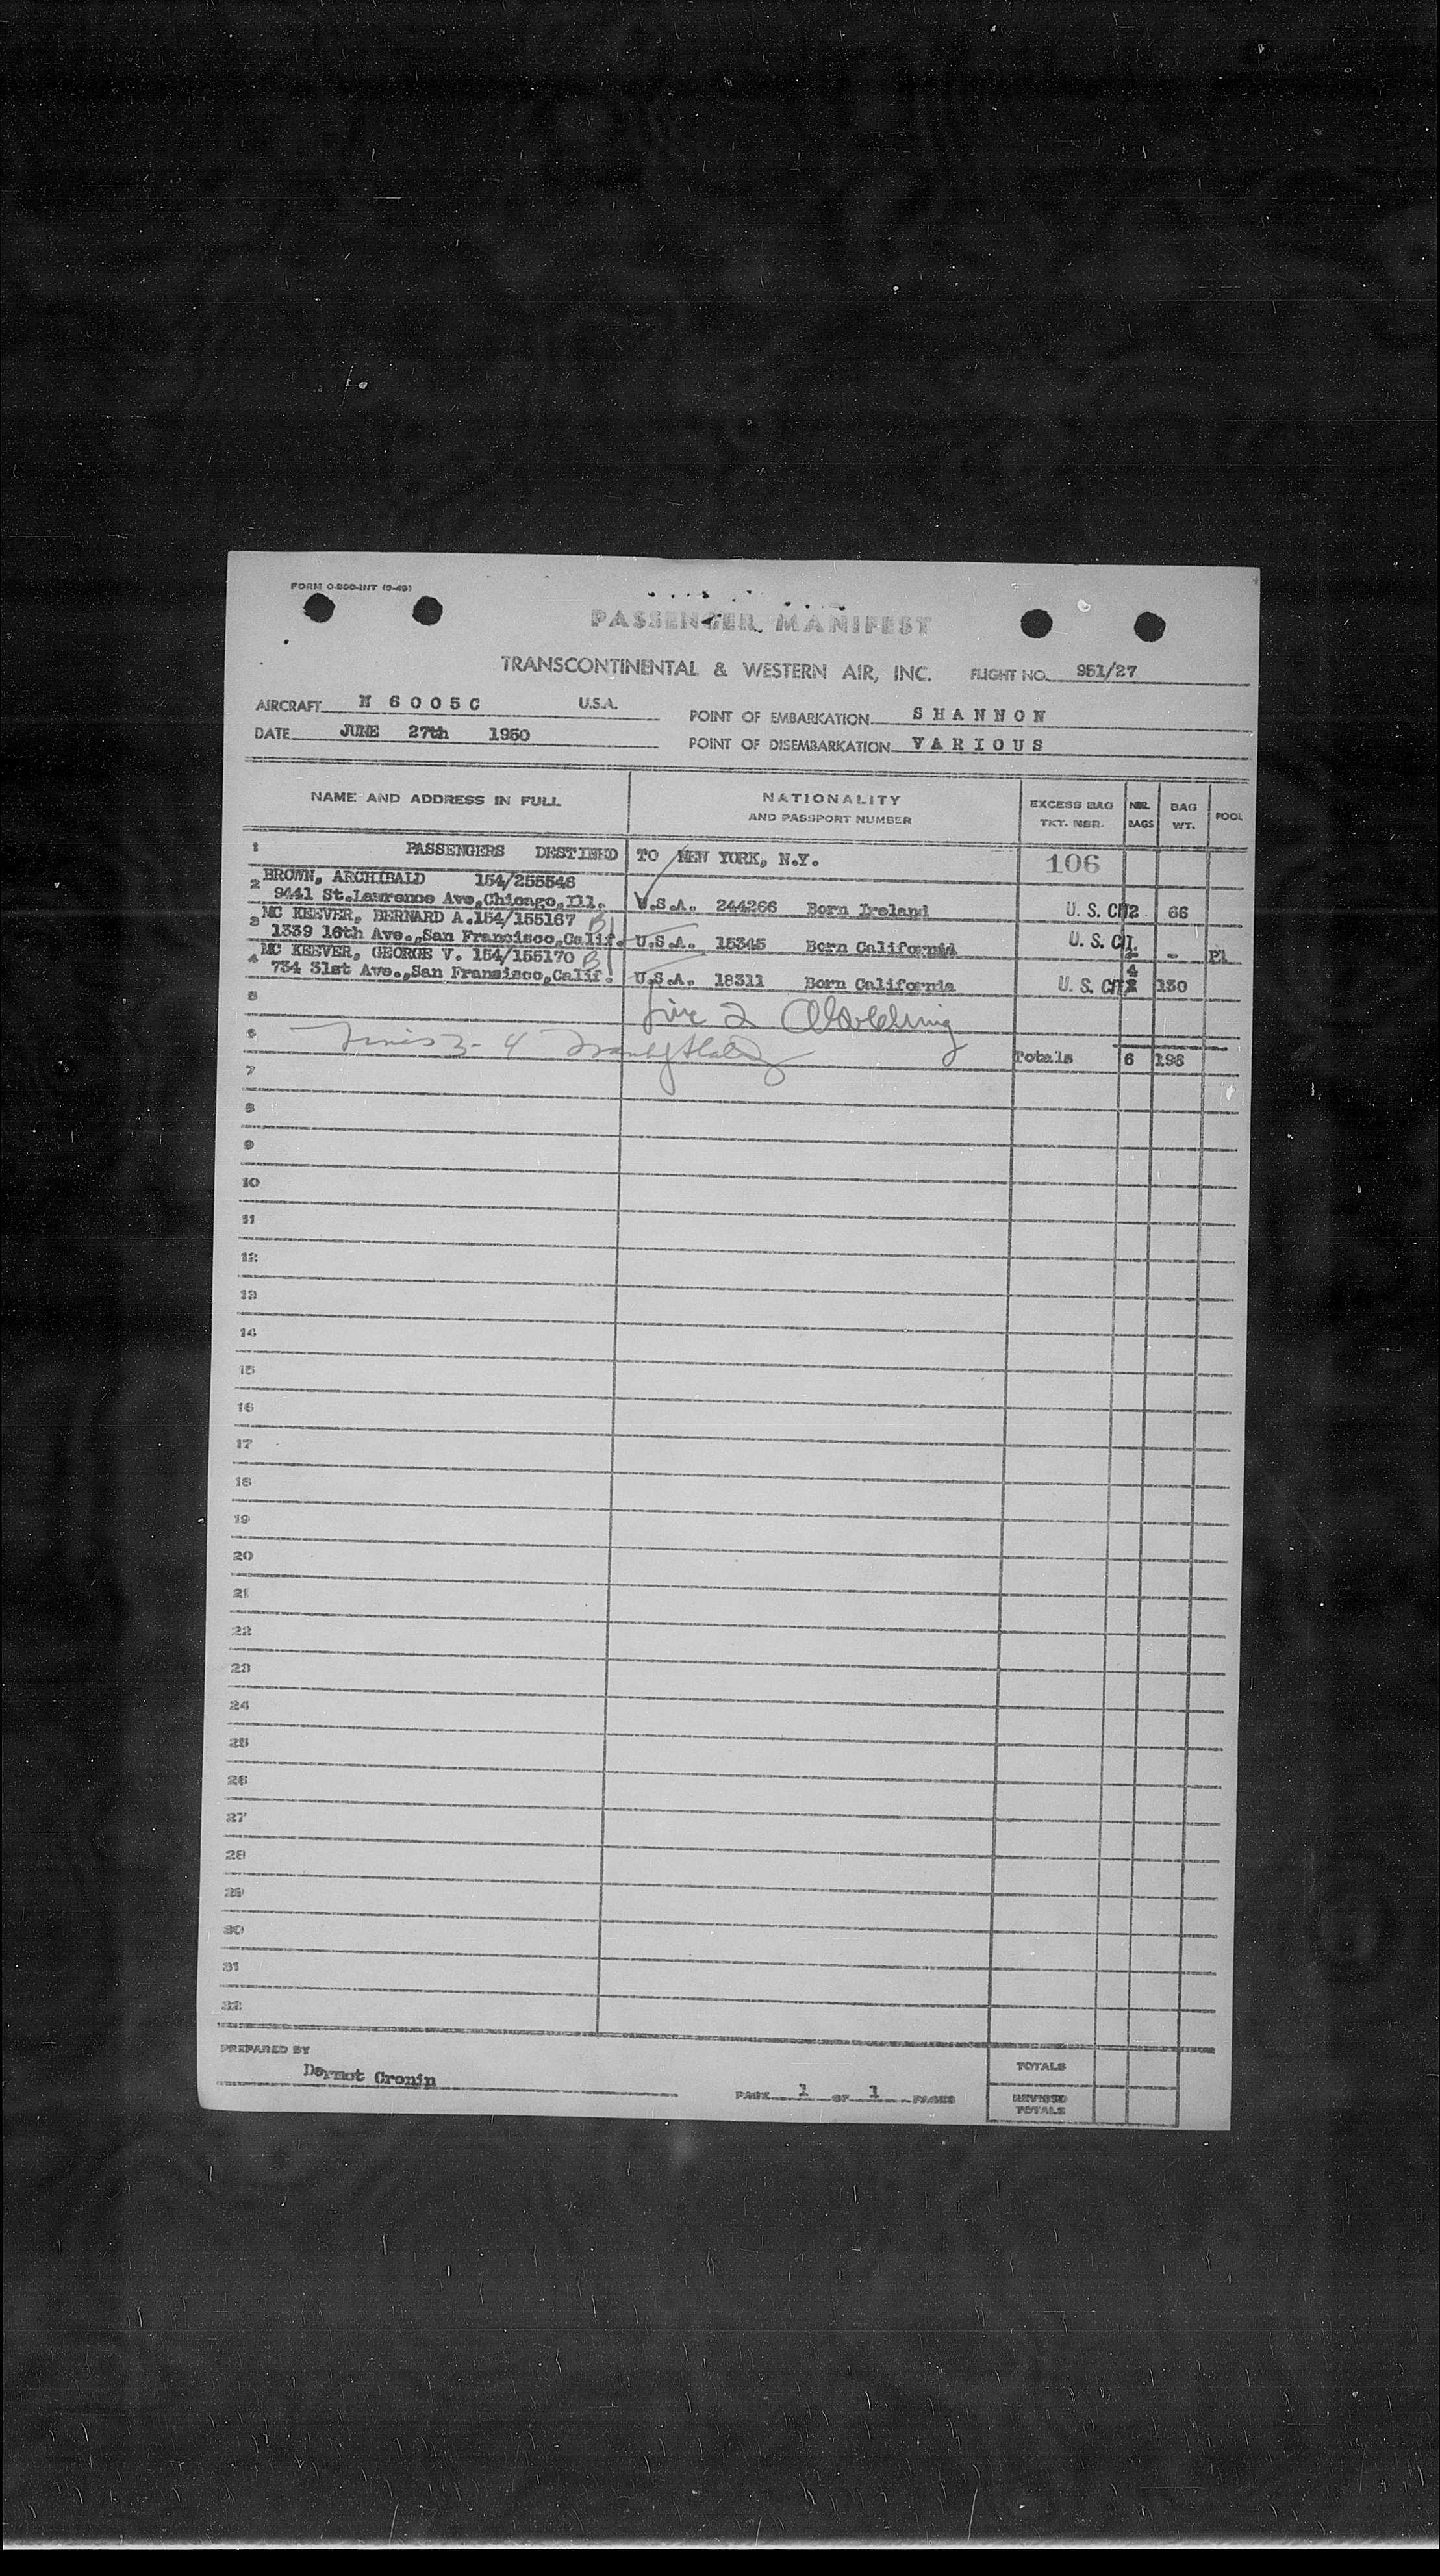 FORM O-800-INT (9-49)
PASSENGER MANIFEST
TRANSCONTINENTAL & WESTERN AIR, INC. FLIGHT NO. 951/27
AIRCRAFT N 6005C U.S.A.
POINT OF EMBARKATION SHANNON
DATE JUNE 27th 1950
POINT OF DISEMBARKATION VARIOUS
NAME AND ADDRESS IN FULL NATIONALITY AND PASSPORT NUMBER EXCESS BAG TKT. NBR. NBR. BAGS BAG WT. POOL
1 PASSENGERS DESTINED TO NEW YORK, N.Y. 106
BROWN, ARCHIBALD 154/255546
2 9441 St.Lawrence Ave,Chicago,Ill. U.S.A. 244266 Born Ireland U. S. CIT 2 66
MC KEEVER, BERNARD A.154/155167 B
3 1339 16th Ave.,San Francisco,Calif. U.S.A. 15345 Born California U. S. CIT. - - P1
MC KEEVER, GEORGE V. 154/155170 B
4 734 31st Ave.,San Fransisco,Calif. U.S.A. 18311 Born California U. S. CIT 4 130
5 line 2
6 Lines 3-4 Totals 6 196
7
8
9
10
11
12
13
14
15
16
17
18
19
20
21
22
23
24
25
26
27
28
29
30
31
32
PREPARED BY
Dermot Cronin
PAGE 1 OF 1 PAGES
TOTALS
REVISED TOTALS